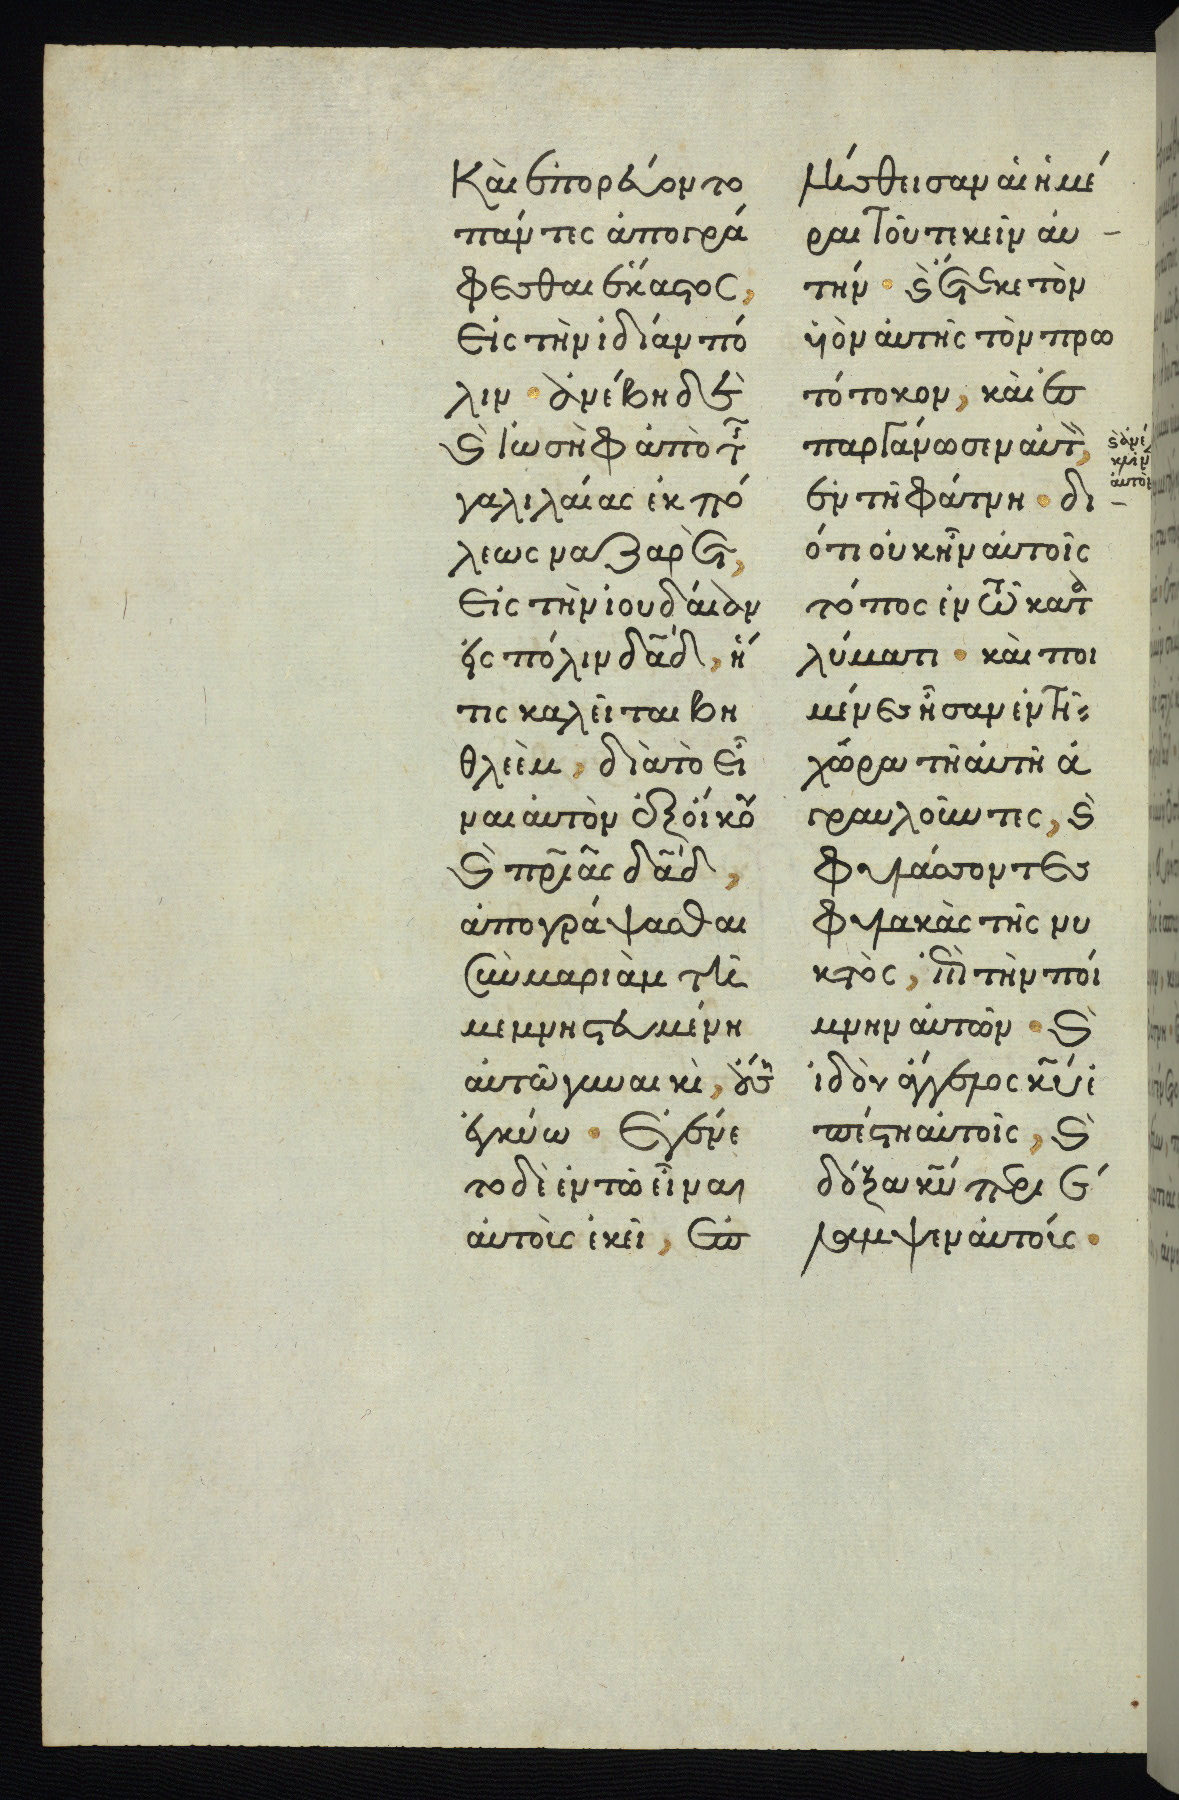 Καὶ ἐπορεύοντο
πάντες ἀπογρά
φεσθαι ἕκαστος,
εἰς τὴν ἰδίαν πό
λιν · ἀνέβη δὲ
ϗ ἰωσὴφ ἀπὸ τῆς
γαλιλαίας ἐκ πό
λεως ναζαρὲτ,
εἰς τὴν ἰουδαίαν
εἰς πόλιν δᾱδ, ἥ
τις καλεῖται βη
θλεὲμ, διὰ τὸ εἶ
ναι αὐτὸν ἐξ οἴκου
ϗ πρ̄ιᾶς δᾱδ,
ἀπογράψασθαι
σὺν μαριὰμ τῇ
μεμνηστευμένη
αὐτῶ γυναικὶ, οὔση
ἐγκύω · ἐγένε
το δὲ ἐν τῶ εἶναι
αὐτοὺς ἐκεῖ, ἐπ
λήσθησαν αἱ ἡμέ
ραι τοῦ τεκεῖν αὐ
τήν · ϗ ἔτεκε τὸν
υἱὸν αὐτῆς τὸν πρω
τότοκον, καὶ ἐσ
παργάνωσεν αὐτὸν,
ϗ ἀνέ
κλιν
αὐτὸν
ἐν τῆ φάτνη · δι
ότι οὐκ ἦν αὐτοῖς
τόπος ἐν τῶ κατα
λύματι · καὶ ποι
μένες ἦσαν ἐν τῆ
χώρα τῆ αὐτῆ ἀ
γραυλοῦντες, ϗ
φυλάσσοντες
φυλακὰς τῆς νυ
κτὸς, ἐπὶ τὴν ποί
μνην αὐτῶν · ϗ
ἰδοὺ ἄγγελος κῡ ἐ
πέστη αὐτοῖς, ϗ
δόξα κῡ περιέ
λαμψεν αὐτούς ·